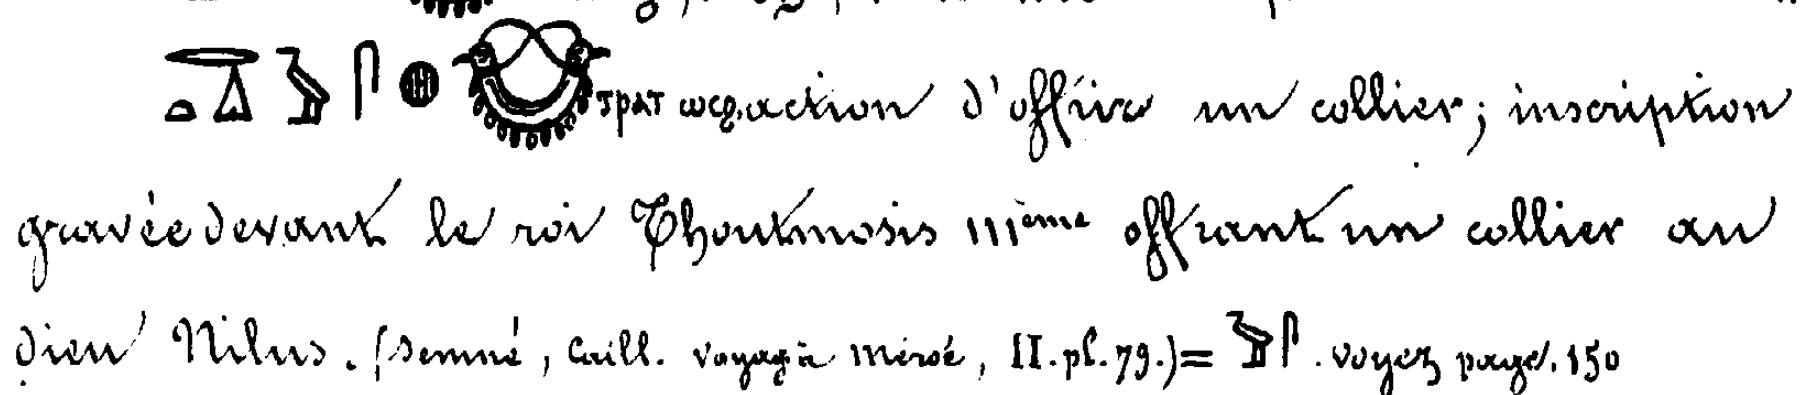 ⲧⲣⲁⲧ ⲱⲥϧ, action d'offrir un collier; inscription
gravée devant le roi Thoutmosis IIIème offrant un collier au
dieu Nilus. (Semné, Caill. voyage à Méroé, II. pl. 79.) = . voyez page. 150